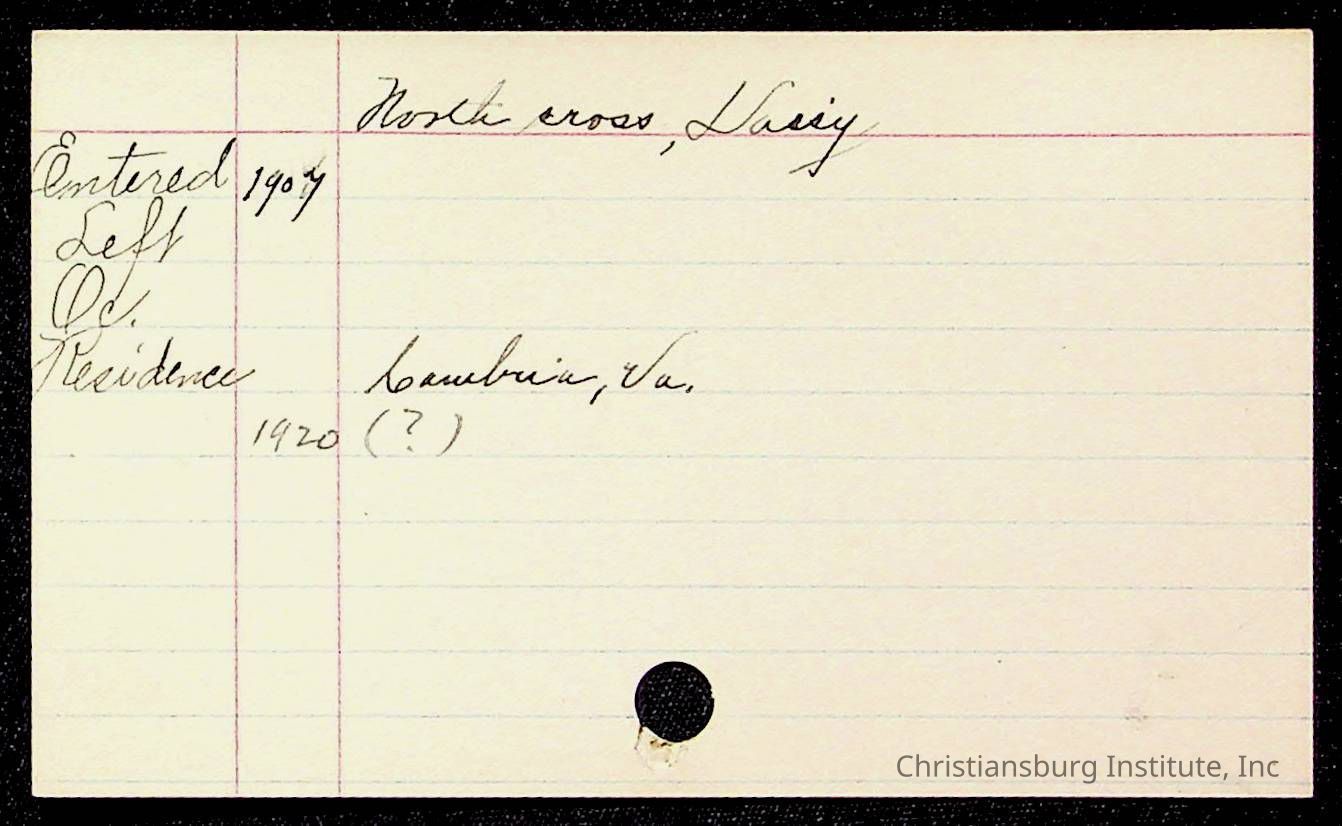 North cross, Daisy
Entered 1907
Left
Oc.
Residence Cambria, Va.
1920 (?)
Christiansburg Institute, Inc